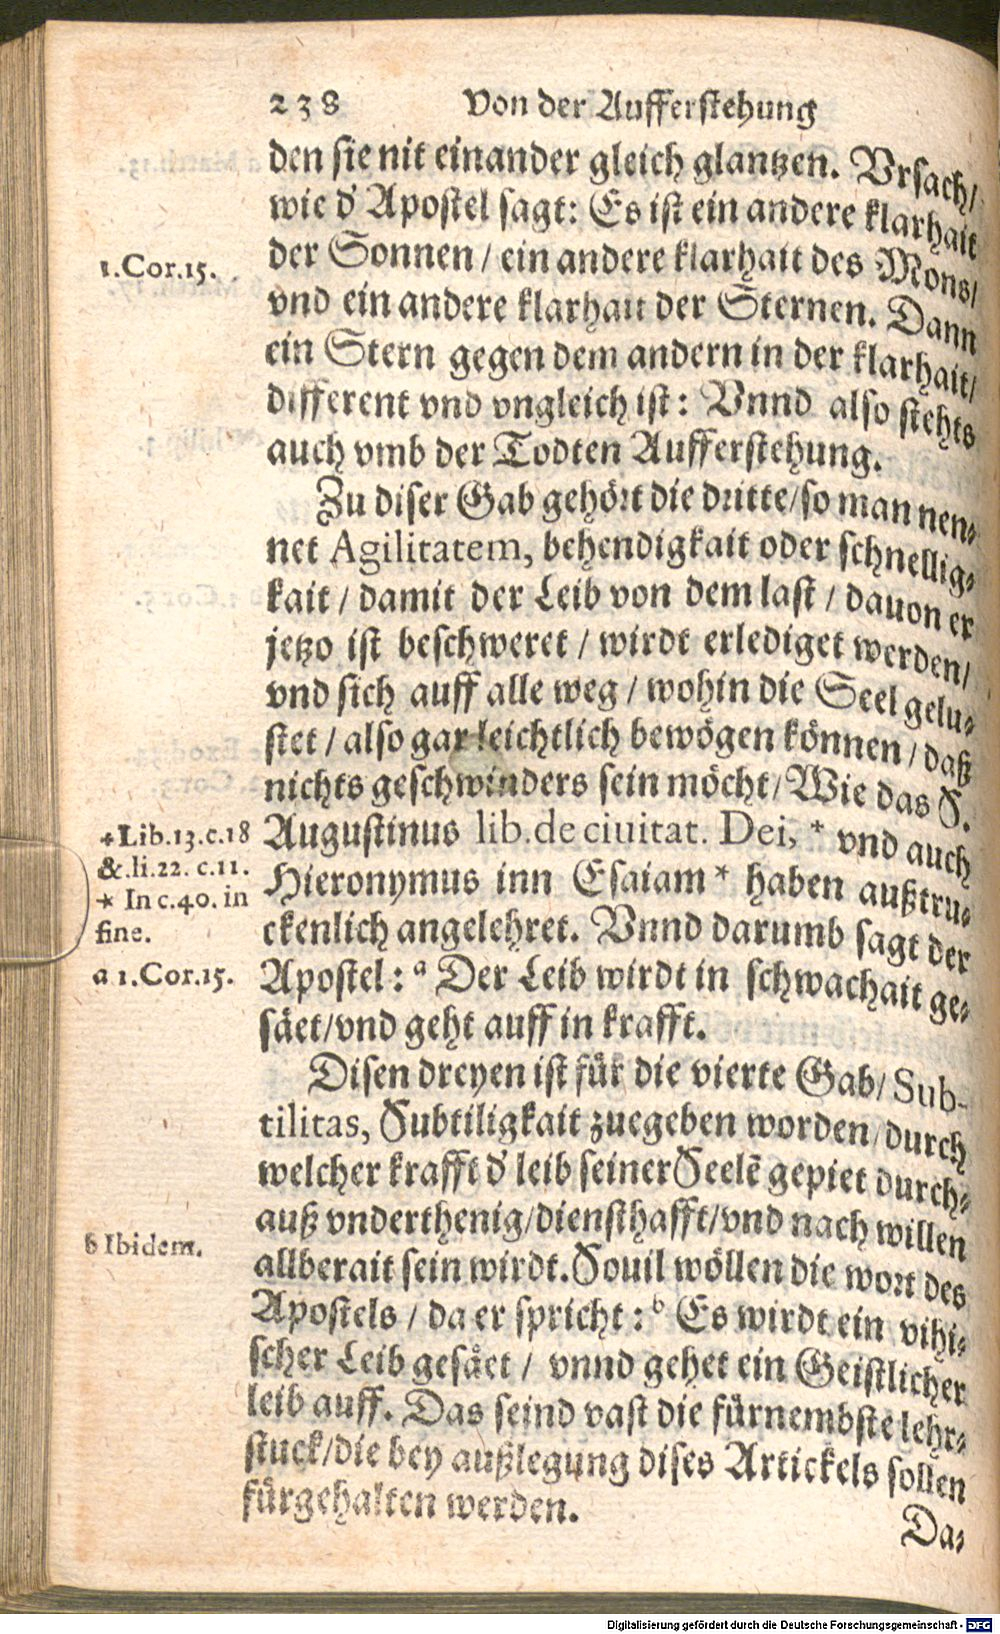 238 Von der Aufferstehung
den sie nit einander gleich glantzen. Vrsach/
wie d' Apostel sagt: Es ist ein andere klarhait
1.Cor.15.
der Sonnen / ein andere klarhait des Mons/
vnd ein andere klarhait der Sternen. Dann
ein Stern gegen dem andern in der klarhait/
different vnd vngleich ist: Vnnd also stehts
auch vmb der Todten Aufferstehung.
Zu diser Gab gehört die dritte/so man nen⸗
net Agilitatem, behendigkait oder schnellig⸗
kait / damit der Leib von dem last / dauon er
jetzo ist beschweret / wirdt erlediget werden/
vnd sich auff alle weg / wohin die Seel gelu⸗
stet / also gar leichtlich bewögen können / daß
nichts geschwinders sein möcht/ Wie das S.
Augustinus lib. de ciuitat. Dei, * vnd auch
Hieronymus inn Esaiam * haben außtru⸗
ckenlich angelehret. Vnnd darumb sagt der
Apostel: a Der Leib wirdt in schwachait ge⸗
säet/vnd geht auff in krafft.
*Lib.13.c.18
&.li.22. c.11.
* In c.40. in
fine.
a 1.Cor.15.
Disen dreyen ist für die vierte Gab/ Sub-
tilitas, Subtiligkait zuegeben worden/durch
welcher krafft d' leib seiner Seelē gepiet durch⸗
auß vnderthenig/diensthafft/vnd nach willen
b Ibidem.
allberait sein wirdt. Souil wöllen die wort des
Apostels / da er spricht: b Es wirdt ein vihi⸗
scher Leib gesäet / vnnd gehet ein Geistlicher
leib auff. Das seind vast die fürnembste lehr⸗
stuck/die bey außlegung dises Artickels sollen
fürgehalten werden.
Da⸗
Digitalisierung gefördert durch die Deutsche Forschungsgemeinschaft - DFG